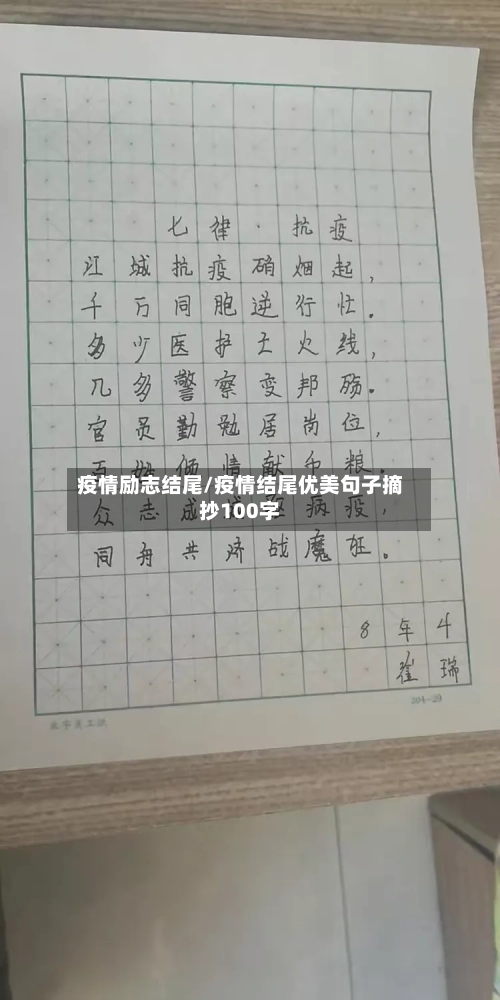 七律·抗疫
江城抗疫硝烟起，
千万同胞逆行忙。
多少医护上火线，
几多警察变邦殇。
官员勤勉居岗位，
百姓倾情献币粮。
疫情励志结尾/疫情结尾优美句子摘
抄100字
众志成城驱病疫，
同舟共济战魔狂。
8年4
瑞
204—29